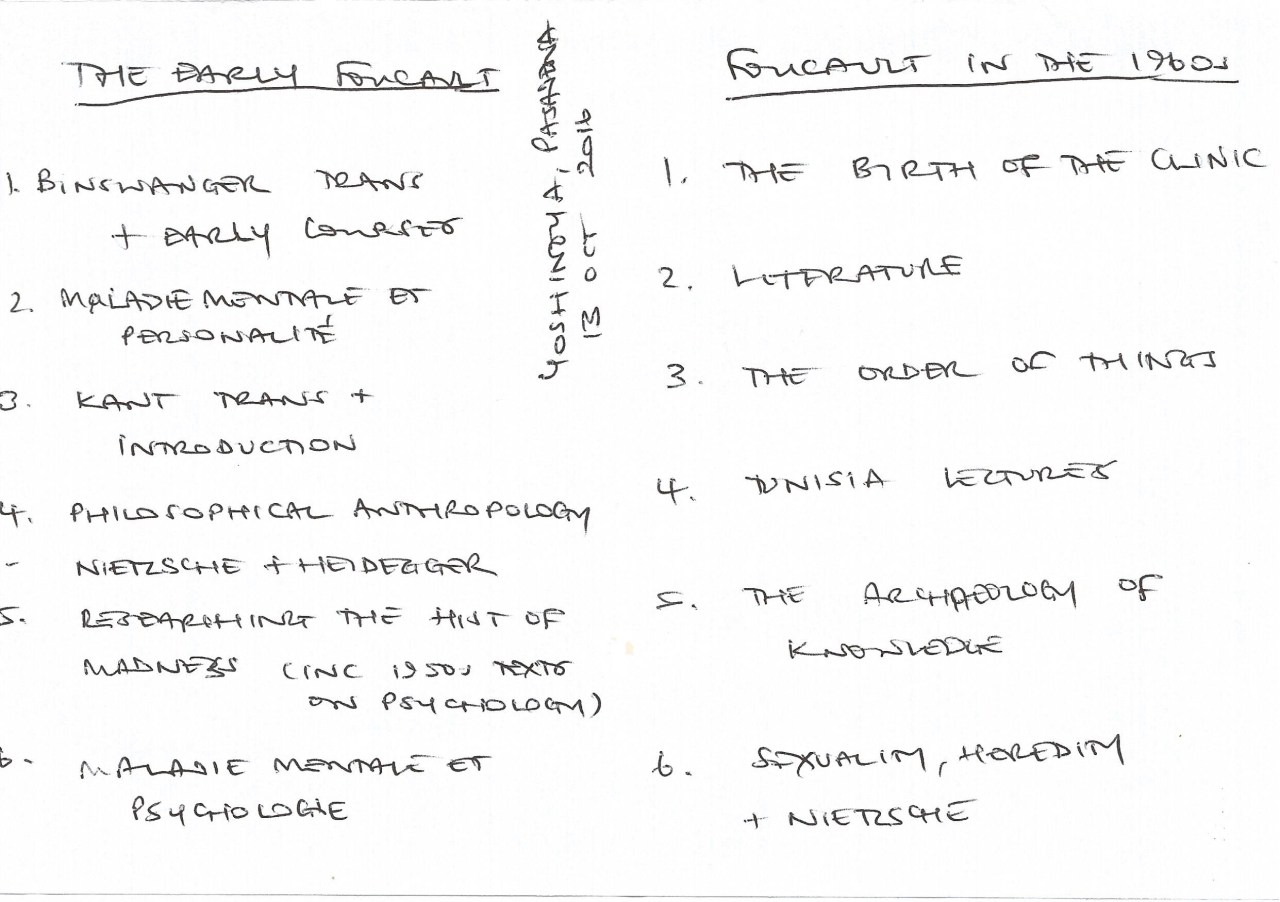 THE EARLY FOUCAULT
1. BINSWANGER TRANS
+ EARLY COURSES
2. MALADIE MENTALE ET
PERSONALITÉ
3. KANT TRANS +
INTRODUCTION
4. PHILOSOPHICAL ANTHROPOLOGY
- NIETZSCHE + HEIDEGGER
5. RESEARCHING THE HIST OF
MADNESS (INC 1950s TEXTS
ON PSYCHOLOGY)
6. MALADIE MENTALE ET
PSYCHOLOGIE
YOSHINOYA, PASADENA
13 OCT 2016
FOUCAULT IN THE 1960s
1. THE BIRTH OF THE CLINIC
2. LITERATURE
3. THE ORDER OF THINGS
4. TUNISIA LECTURES
5. THE ARCHAEOLOGY OF
KNOWLEDGE
6. SEXUALITY, HEREDITY
+ NIETZSCHE